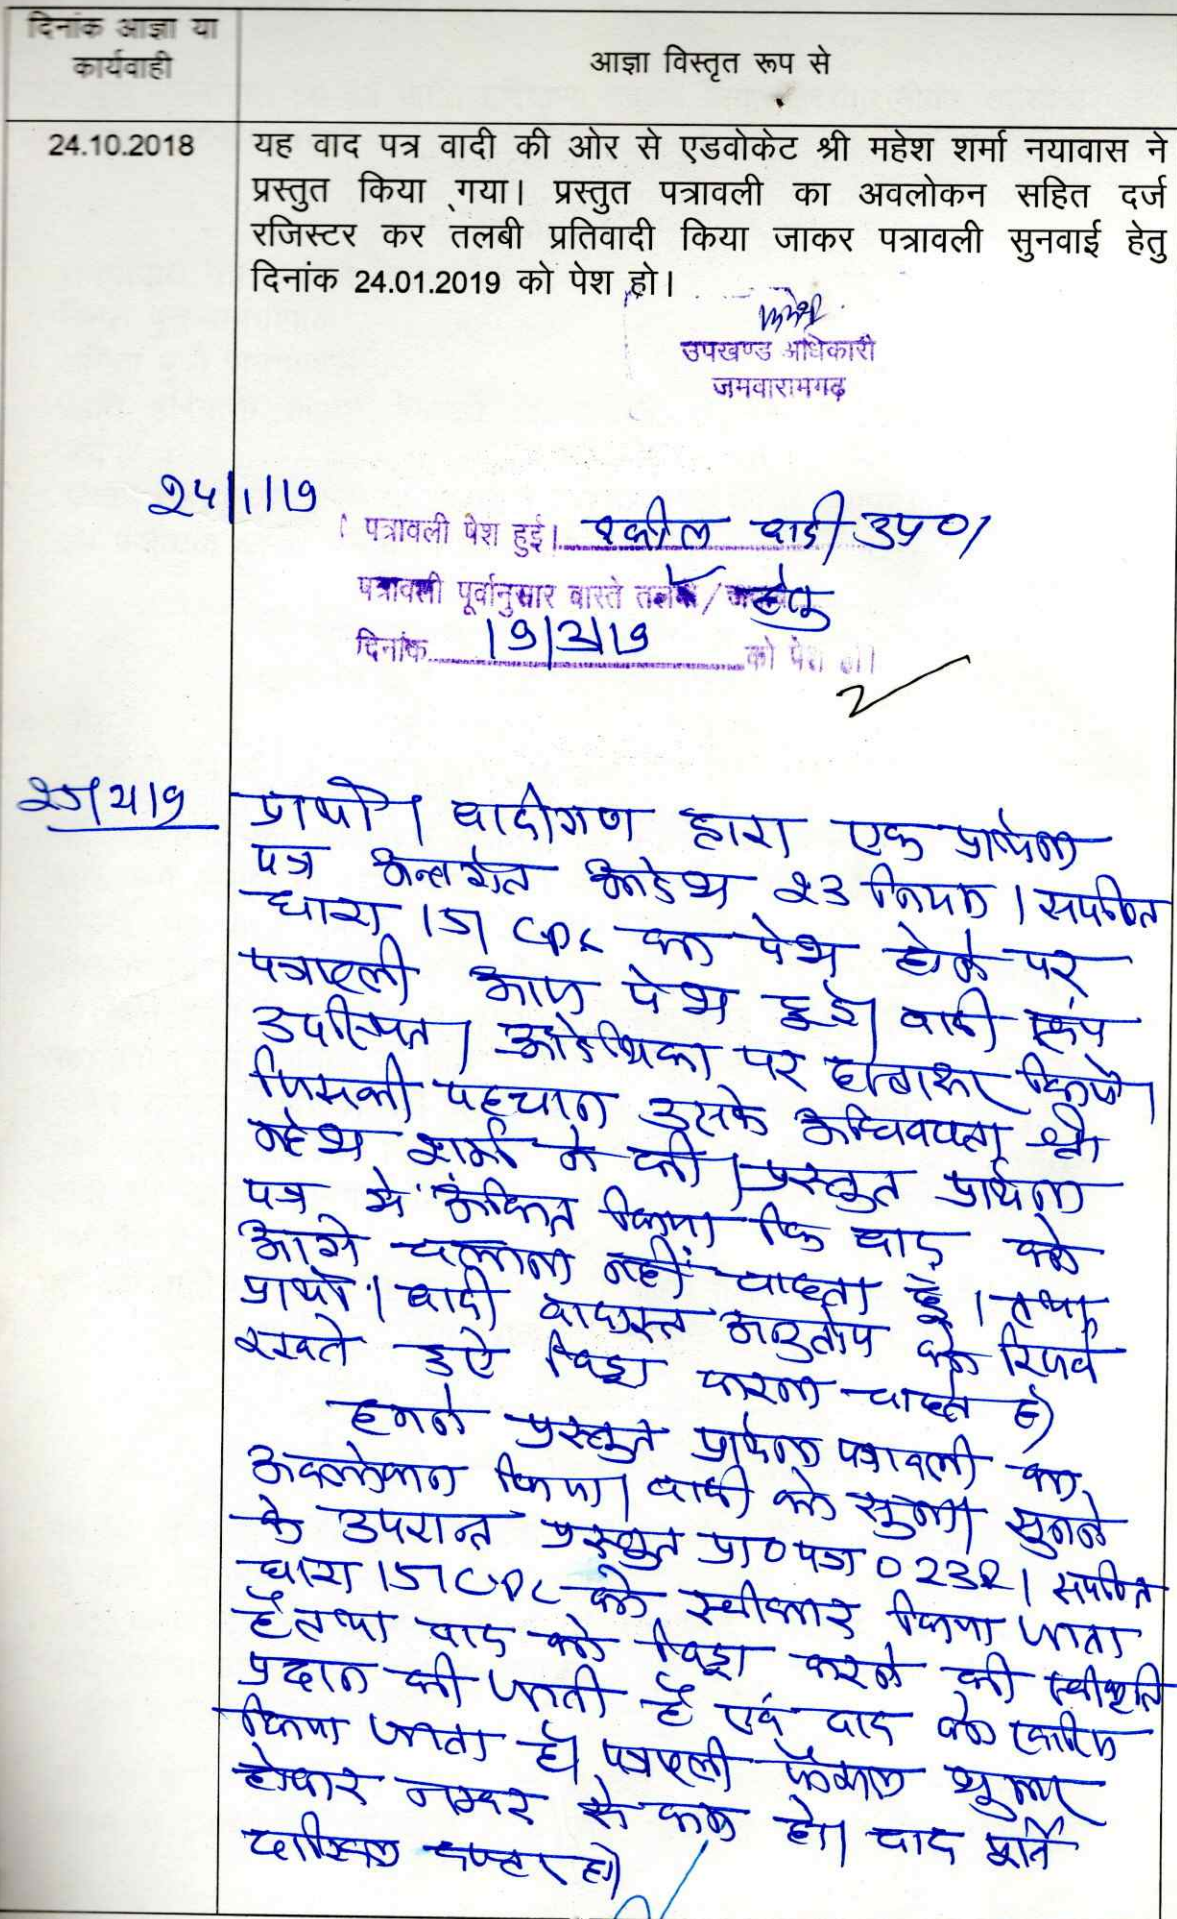 दिनांक आज्ञा या
कार्यवाही
आज्ञा विस्तृत रूप से
24.10.2018
यह वाद पत्र वादी की ओर से एडवोकेट श्री महेश शर्मा नयावास ने
प्रस्तुत किया गया। प्रस्तुत पत्रावली का अवलोकन सहित दर्ज
रजिस्टर कर तलबी प्रतिवादी किया जाकर पत्रावली सुनवाई हेतु
दिनांक 24.01.2019 को पेश हो।
उपखण्ड अधिकारी
जमवारामगढ़
24/1/19
पत्रावली पेश हुई। वकील वादी उप०।
पत्रावली पूर्वानुसार वास्ते हेतु
दिनांक 19/2/19 को पेश हो।
प्रार्थी। वादीगण द्वारा एक प्रार्थना
पत्र अन्तर्गत आदेश 23 नियम 1 सपठित
धारा 151 CPC का पेश होने पर
पत्रावली आज पेश हुई। वादी स्वयं
उपस्थित। आदेशिका पर हस्ताक्षर किये।
जिसकी पहचान उसके अधिवक्ता श्री
महेश शर्मा ने की। प्रस्तुत प्रार्थना
पत्र में अंकित किया कि वाद को
आगे चलाना नहीं चाहता है। तथा
प्रार्थी। वादी वादग्रस्त अनुतोष को रिजर्व
रखते हुऐ विड्रा करना चाहते है।
हमने प्रस्तुत प्रार्थना पत्रावली का
अवलोकन किया। वादी को सुना। सुनने
के उपरान्त प्रस्तुत प्रा०पत्र 0 23 R 1 सपठित
धारा 151 CPC को स्वीकार किया जाता
है तथा वाद को विड्रा करने की स्वीकृति
प्रदान की जाती है एवं वाद को खारिज
किया जाता है। पत्रावली फैसल शुमार
होकर नम्बर से कम हो। बाद पूर्ति
दाखिल दफ्तर हो।